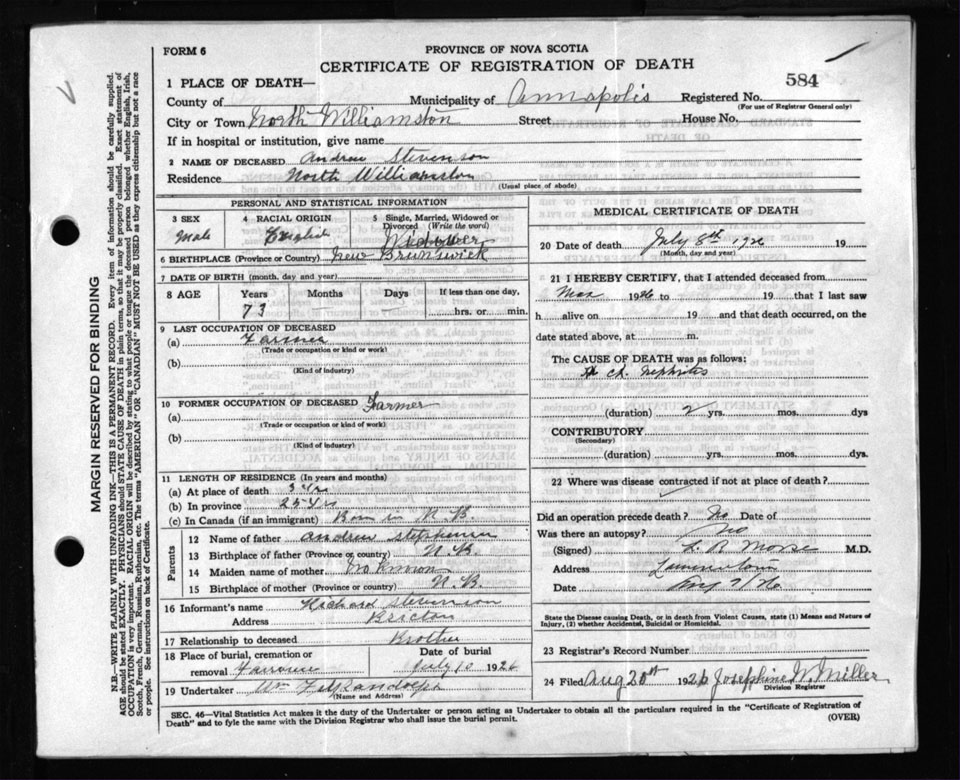 FORM 6
PROVINCE OF NOVA SCOTIA
CERTIFICATE OF REGISTRATION OF DEATH
584
1 PLACE OF DEATH—
County of Municipality of Annapolis Registered No.
(For use of Registrar General only)
City or Town North Williamston Street House No.
If in hospital or institution, give name
2 NAME OF DECEASED Andrew Stevenson
Residence North Williamston
(Usual place of abode)
PERSONAL AND STATISTICAL INFORMATION
3 SEX 4 RACIAL ORIGIN 5 Single, Married, Widowed or Divorced (Write the word)
Male English Widower
6 BIRTHPLACE (Province or Country) New Brunswick
7 DATE OF BIRTH (month, day and year)
8 AGE Years Months Days If less than one day,
73 hrs. or min.
9 LAST OCCUPATION OF DECEASED
(a) Farmer
(Trade or occupation or kind or work)
(b)
(Kind of industry)
10 FORMER OCCUPATION OF DECEASED Farmer
(a)
(Trade or occupation or kind of work)
(b)
(Kind of industry)
11 LENGTH OF RESIDENCE (In years and months)
(a) At place of death 3 yrs
(b) In province 25 yrs
(c) In Canada (if an immigrant) Born in N.B.
Parents
12 Name of father Andrew Stephenson
13 Birthplace of father (Province or country) N.B.
14 Maiden name of mother Unknown
15 Birthplace of mother (Province or country) N.B.
16 Informant's name Richard Stevenson
Address
17 Relationship to deceased Brother
18 Place of burial, cremation or removal Date of burial
July 10 1926
19 Undertaker Wm FitzRandolph
(Name and Address)
MEDICAL CERTIFICATE OF DEATH
20 Date of death July 8th 1926 19
(Month, day and year)
21 I HEREBY CERTIFY, that I attended deceased from
Mar 1926 to 19 that I last saw
h alive on 19 and that death occurred, on
date stated above, at m.
The CAUSE OF DEATH was as follows:
Ch. Nephritis
(duration) 2 yrs. mos. dys
CONTRIBUTORY
(Secondary)
(duration) yrs. mos. dys.
22 Where was disease contracted if not at place of death?
Did an operation precede death? No Date of
Was there an autopsy? No
(Signed) L. R. Morse M.D.
Address Lawrencetown
Date Aug 7/26
State the Disease causing Death, or in death from Violent Causes, state (1) Means and Nature of Injury, (2) whether Accidental, Suicidal or Homicidal.
23 Registrar's Record Number
24 Filed Aug 20th 1926 Josephine W. Miller
Division Registrar
SEC. 46—Vital Statistics Act makes it the duty of the Undertaker or person acting as Undertaker to obtain all the particulars required in the "Certificate of Registration of
Death" and to fyle the same with the Division Registrar who shall issue the burial permit.
(OVER)
MARGIN RESERVED FOR BINDING
N.B.—WRITE PLAINLY WITH UNFADING INK—THIS IS A PERMANENT RECORD. Every item of information should be carefully supplied.
AGE should be stated EXACTLY. PHYSICIANS should STATE CAUSE OF DEATH in plain terms, so that it may be properly classified. Exact statement of
OCCUPATION is very important. RACIAL ORIGIN will be described by stating to what people or tongue the deceased person belonged whether English, Irish,
Scotch, French, German, Russian, Ruthenian, etc. The terms "AMERICAN" OR "CANADIAN" MUST NOT BE USED as they express citizenship but not a race
or people. See instructions on back of Certificate.